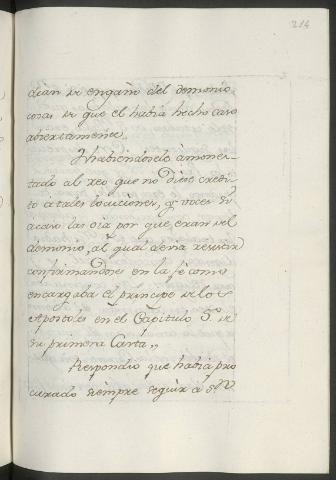 214
cian ser engaño del demonio
cosas de que el havia hecho caso
abiertamente.
Y haviendosele amones-
tado al reo que no diese credi-
to a tales locuciones, y voces si
acaso las oia por que eran del
demonio, al qual devia resistir
confirmandose en la fe como
encargaba el principe de los
Apostoles en el Capitulo 5.º de
su primera Carta,,
Respondio que havia pro
curado siempre seguir a